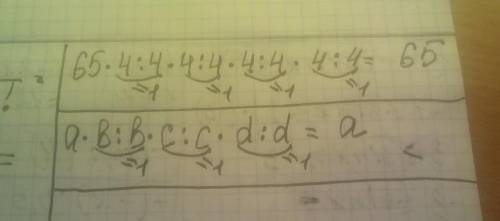 65·4:4·4:4·4:4·4:4= 65
=1 =1 =1 =1
a·b:b·c:c·d:d = a
=1 =1 =1